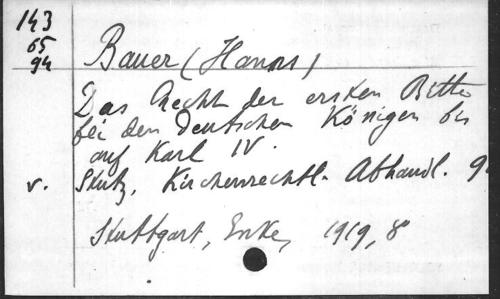 143
65
94
Bauer (Hanns)
Das Recht der ersten Bitte
bei den Deutschen Königen bis
auf Karl IV.
v. Stutz, Kirchenrechtl. Abhandl. 94
Stuttgart, Enke, 1919, 8